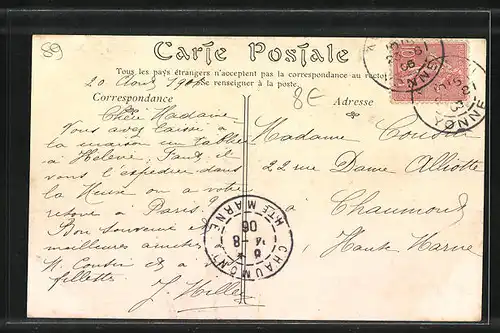 89
Carte Postale
Tous les pays étrangers n'acceptent pas la correspondance au recto
se renseigner à la poste.
20 Août 190
8€
Correspondance
Adresse
Chère Madame
Vous avez laissé à
la maison un tablier
à Hélène, faut il
vous l'expédier dans
la Meuse ou a votre
retour à Paris?
Bon souvenir et
meilleures amitiés
M. Cousin et à
fillettes
J. Hilles
Madame Cousin
22 rue Dame Alliotte
à Chaumont
Haute Marne
CHAUMONT
HTE MARNE
8
08
YONNE